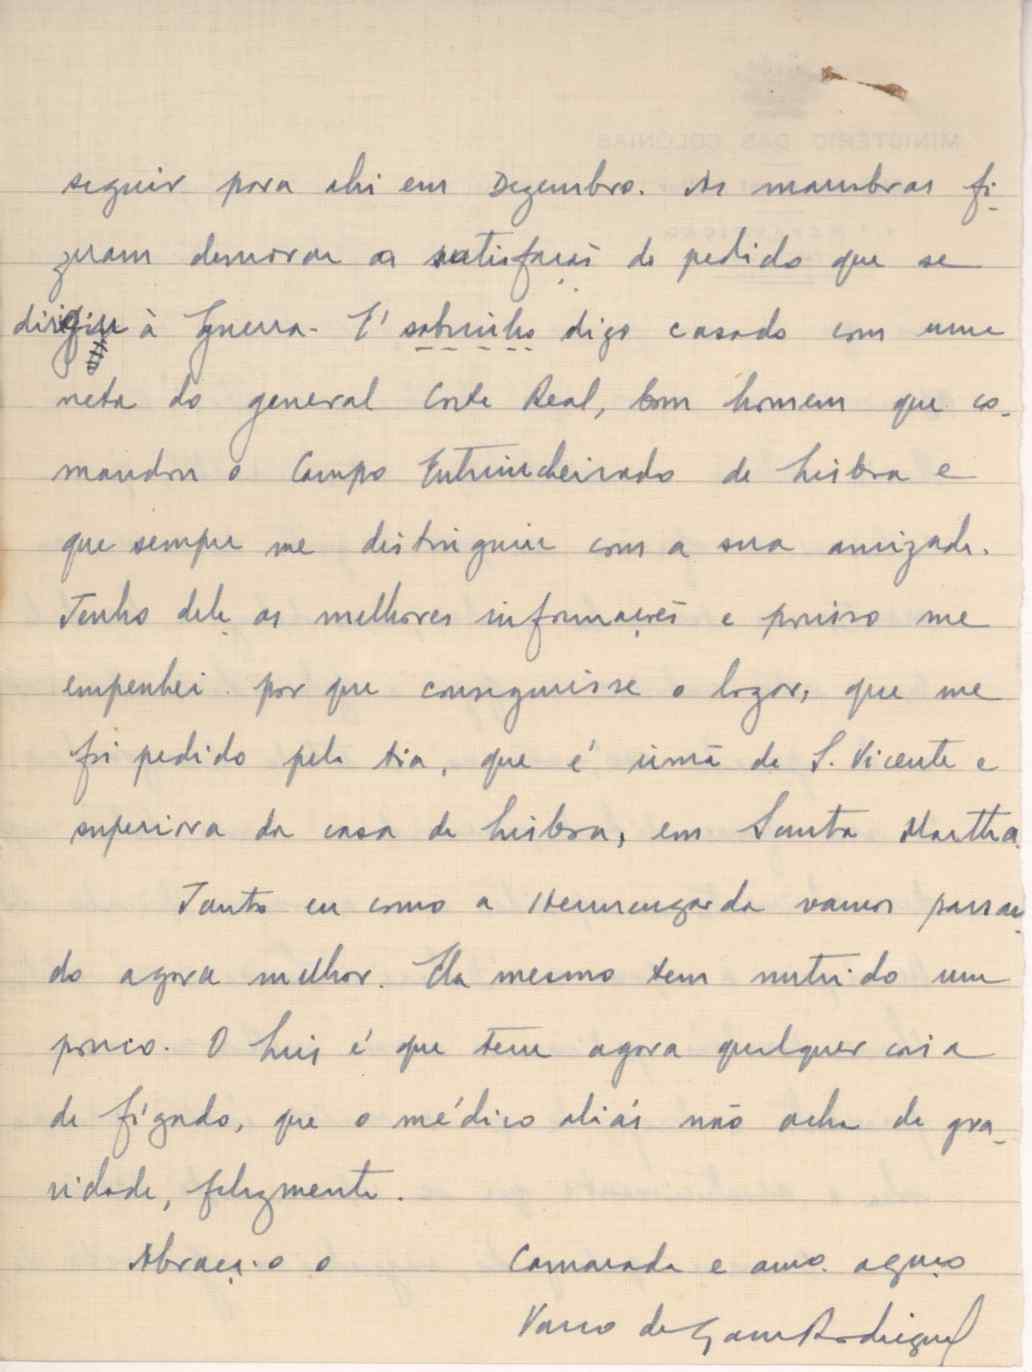 seguir para ahi em Dezembro. As manobras fi-
zeram demorar a satisfação do pedido que se
dirigiu à Guerra. É sobrinho digo casado com uma
neta do general Corte Real, bom homem que co-
mandou o Campo Entrincheirado de Lisboa e
que sempre me distinguiu com a sua amizade.
Tenho dele as melhores informações e por isso me
empenhei por que conseguisse o lugar, que me
foi pedido pela tia, que é irmã de S. Vicente e
superiora da casa de Lisboa, em Santa Martha.
Tanto eu como a Hermengarda vamos passan-
do agora melhor. Ela mesmo tem nutrido um
pouco. O Luis é que tem agora qualquer coisa
de fígado, que o médico aliás não acha de gra-
vidade, felizmente.
Abraça-o o
Camarada e amo. agrdço
Vasco de Gama Rodrigues
MINISTÉRIO DAS COLÓNIAS